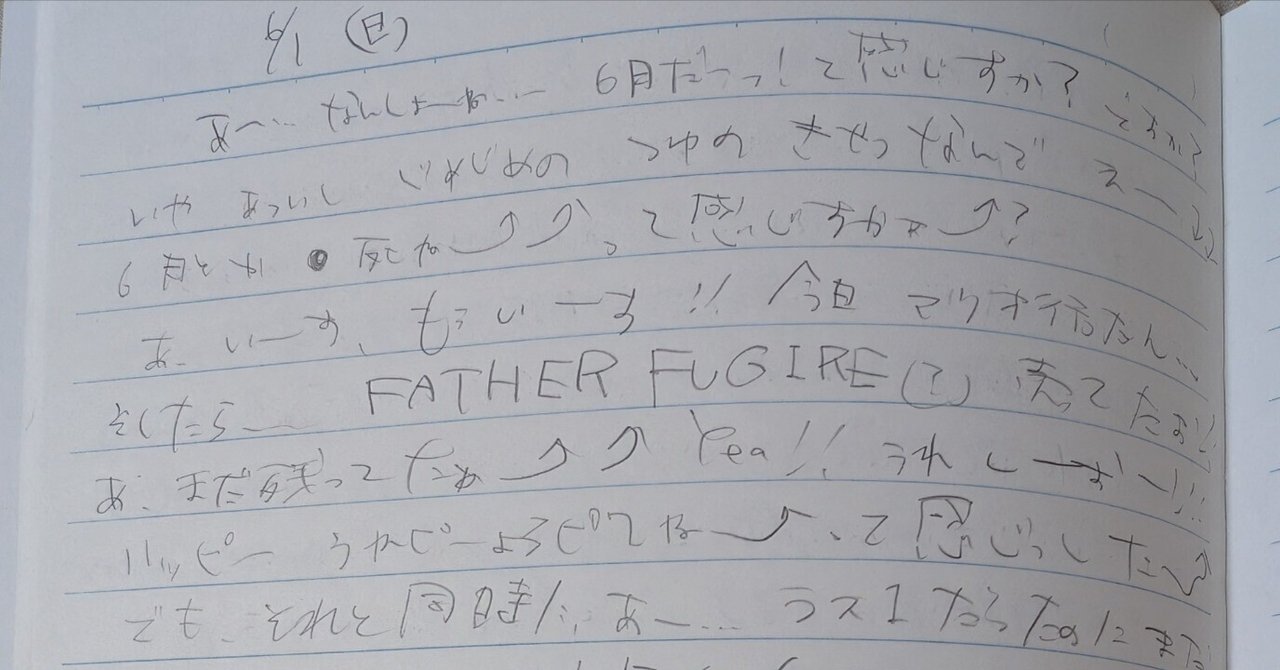 6/1 (日)
あ〜… なんしょーね… 6月だーっ!て感じすか? そうか?
いや あっついし じめじめの つゆの きせつ なんで えー↓↓
6月とか 死ね⤴⤴、って感じすかね⤴?
あ、いーす、もういーす!! 今日 行ったん…
そしたら… FATHER FUGIRE(?) 売ってたよ!!
あ、まだ残ってたね⤴⤴ Yea!! うれしーおー!!!
ハッピー うれピーよろピくねー⤴、って感じっした〜⤴
でも、それと同時に、あー… ラス1 だったのに まだ